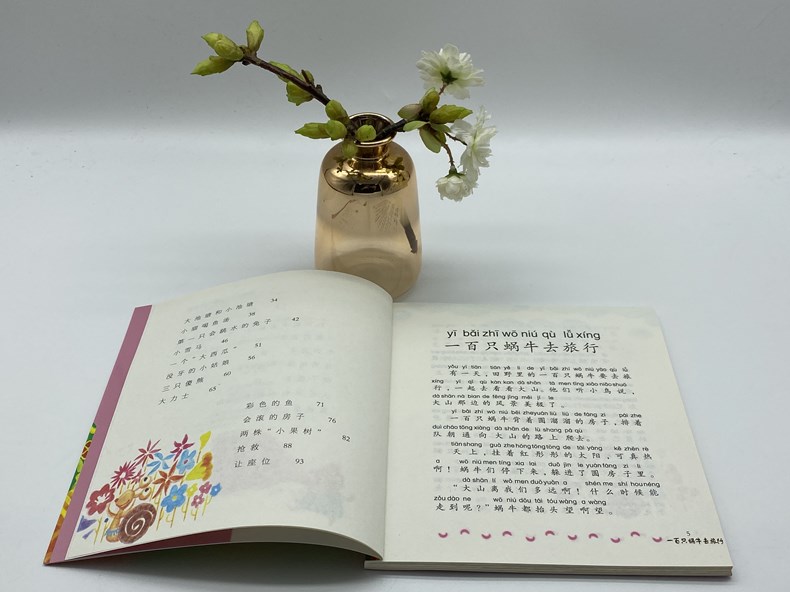 大池塘和小池塘 34
小 38
第一只会跳水的兔子 42
小雪马 46
一个“大西瓜” 51
没牙的小姑娘 56
三只傻熊 60
大力士 65
彩色的鱼 71
会滚的房子 76
两株“小果树” 82
抢救 88
让座位 93
yī bǎi zhī wō niú qù lǚ xíng
一百只蜗牛去旅行
yǒu yì tiān tián yě lǐ de yì bǎi zhī wō niú yào qù lǚ
有一天，田野里的一百只蜗牛要去旅
xíng yì qǐ qù kàn kan dà shān tā men tīng xiǎo niǎo shuō
行，一起去看看大山。他们听小鸟说，
dà shān nà biān de fēng jǐng měi jí le
大山那边的风景美极了。
yì bǎi zhī wō niú bēi zhe yuán liū liū de fáng zi pái zhe
一百只蜗牛背着圆溜溜的房子，排着
duì cháo tōng xiàng dà shān de lù shang pá qù
队朝通向大山的路上爬去。
tiān shàng guà zhe hóng tóng tóng de tài yáng kě zhēn rè
天上，挂着红彤彤的太阳，可真热
a wō niú men tíng xià lai duǒ jìn le yuán fáng zi lǐ
啊！蜗牛们停下来，躲进了圆房子里。
dà shān lí wǒ men duō yuǎn a shén me shí hou néng
“大山离我们多远啊！什么时候能
zǒu dào ne wō niú dōu tái tóu wàng a wàng
走到呢？”蜗牛都抬头望啊望。
5
一百只蜗牛去旅行